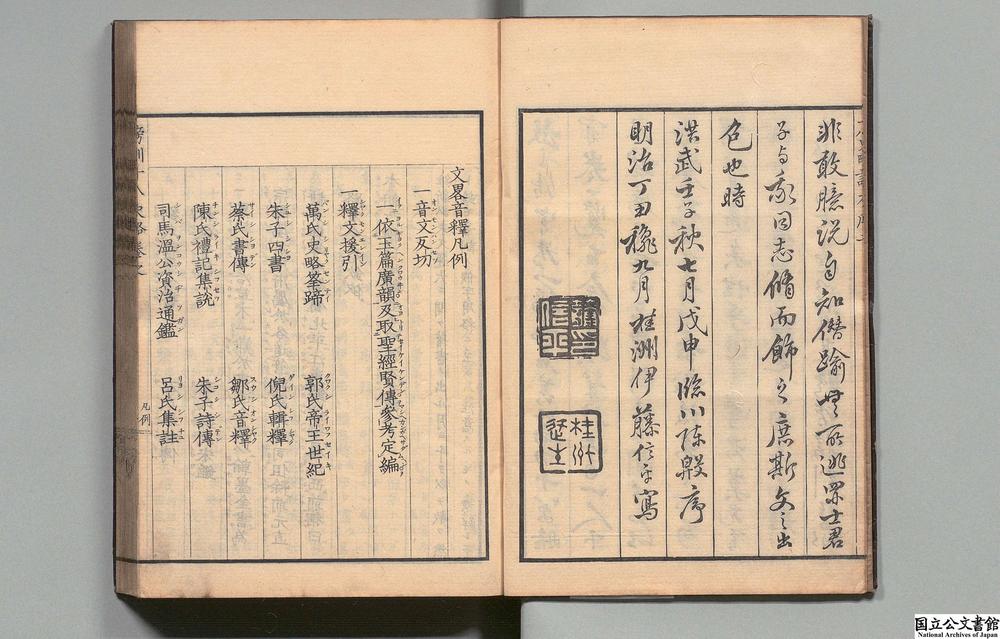 非敢臆説自知僭踰無所逃罪士君
子與我同志脩而飾之庶斯文之出
色也時
洪武壬子秋七月戊申臨川陳殷序
明治丁丑穐九月桂洲伊藤信平寫
桂洲
文畧音釋凡例
一音文反切
一依玉篇廣韻及取聖經賢傳參考定編
一釋文援引
萬氏史略筌蹄 郭氏帝王世紀
朱子四書 倪氏輯釋
蔡氏書傳 鄒氏音釋
陳氏禮記集說 朱子詩傳
司馬溫公資治通鑑 呂氏集註
凡例
国立公文書館
National Archives of Japan